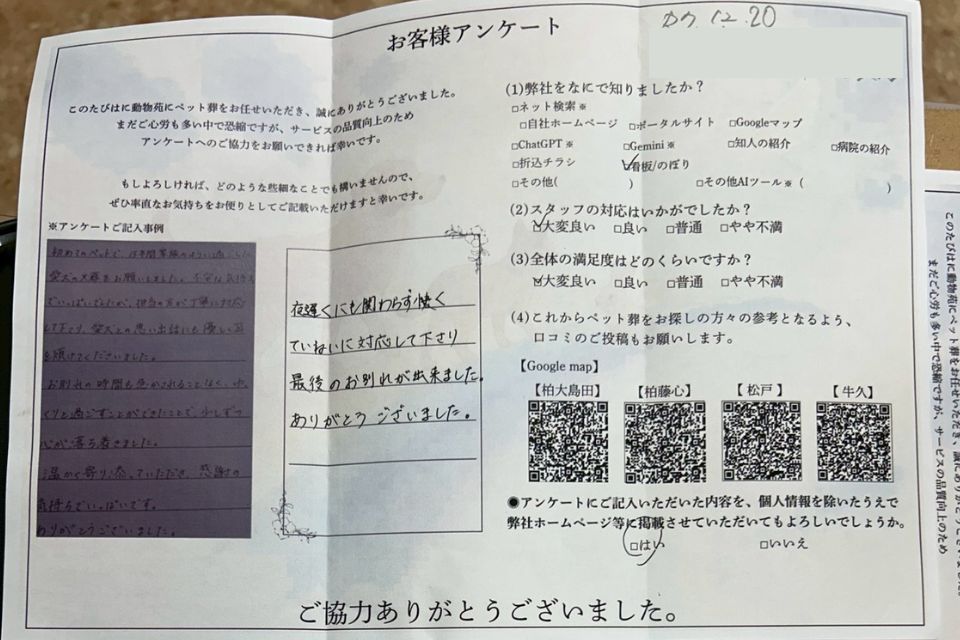 お客様アンケート
R7.12.20
このたびはに動物苑にペット葬をお任せいただき、誠にありがとうございました。
まだご心労も多い中で恐縮ですが、サービスの品質向上のため
アンケートへのご協力をお願いできれば幸いです。
もしよろしければ、どのような些細なことでも構いませんので、
ぜひ率直なお気持ちをお便りとしてご記載いただけますと幸いです。
※アンケートご記入事例
初めてのペットで、
愛犬の火葬をお願いしました。
でいっぱいでしたが、担当の方が丁寧に対応
して下さり、愛犬との思い出話にも優しく耳
を傾けてくださいました。
お別れの時間も急かされることなく、ゆっ
くりと過ごすことができたことで、少しずつ
心が落ち着きました。
温かく寄り添っていただき、感謝の
気持ちでいっぱいです。
ありがとうございました。
夜遅くにも関わらず快く
ていねいに対応して下さり
最後のお別れが出来ました。
ありがとうございました。
(1)弊社をなにで知りましたか?
□ネット検索※
□自社ホームページ □ポータルサイト □Googleマップ
□ChatGPT※ □Gemini※ □知人の紹介 □病院の紹介
□折込チラシ ☑看板/のぼり
□その他( ) □その他AIツール※( )
(2)スタッフの対応はいかがでしたか?
☑大変良い □良い □普通 □やや不満
(3)全体の満足度はどのくらいですか?
☑大変良い □良い □普通 □やや不満
(4)これからペット葬をお探しの方々の参考となるよう、
口コミのご投稿もお願いします。
【Google map】
【柏大島田】 【柏藤心】 【松戸】 【牛久】
●アンケートにご記入いただいた内容を、個人情報を除いたうえで
弊社ホームページ等に掲載させていただいてもよろしいでしょうか。
□はい □いいえ
ご協力ありがとうございました。
このたびはに動物苑にペット葬をお任せいただき、誠にありがとうございました
まだご心労も多い中で恐縮ですが、サービスの品質向上のため